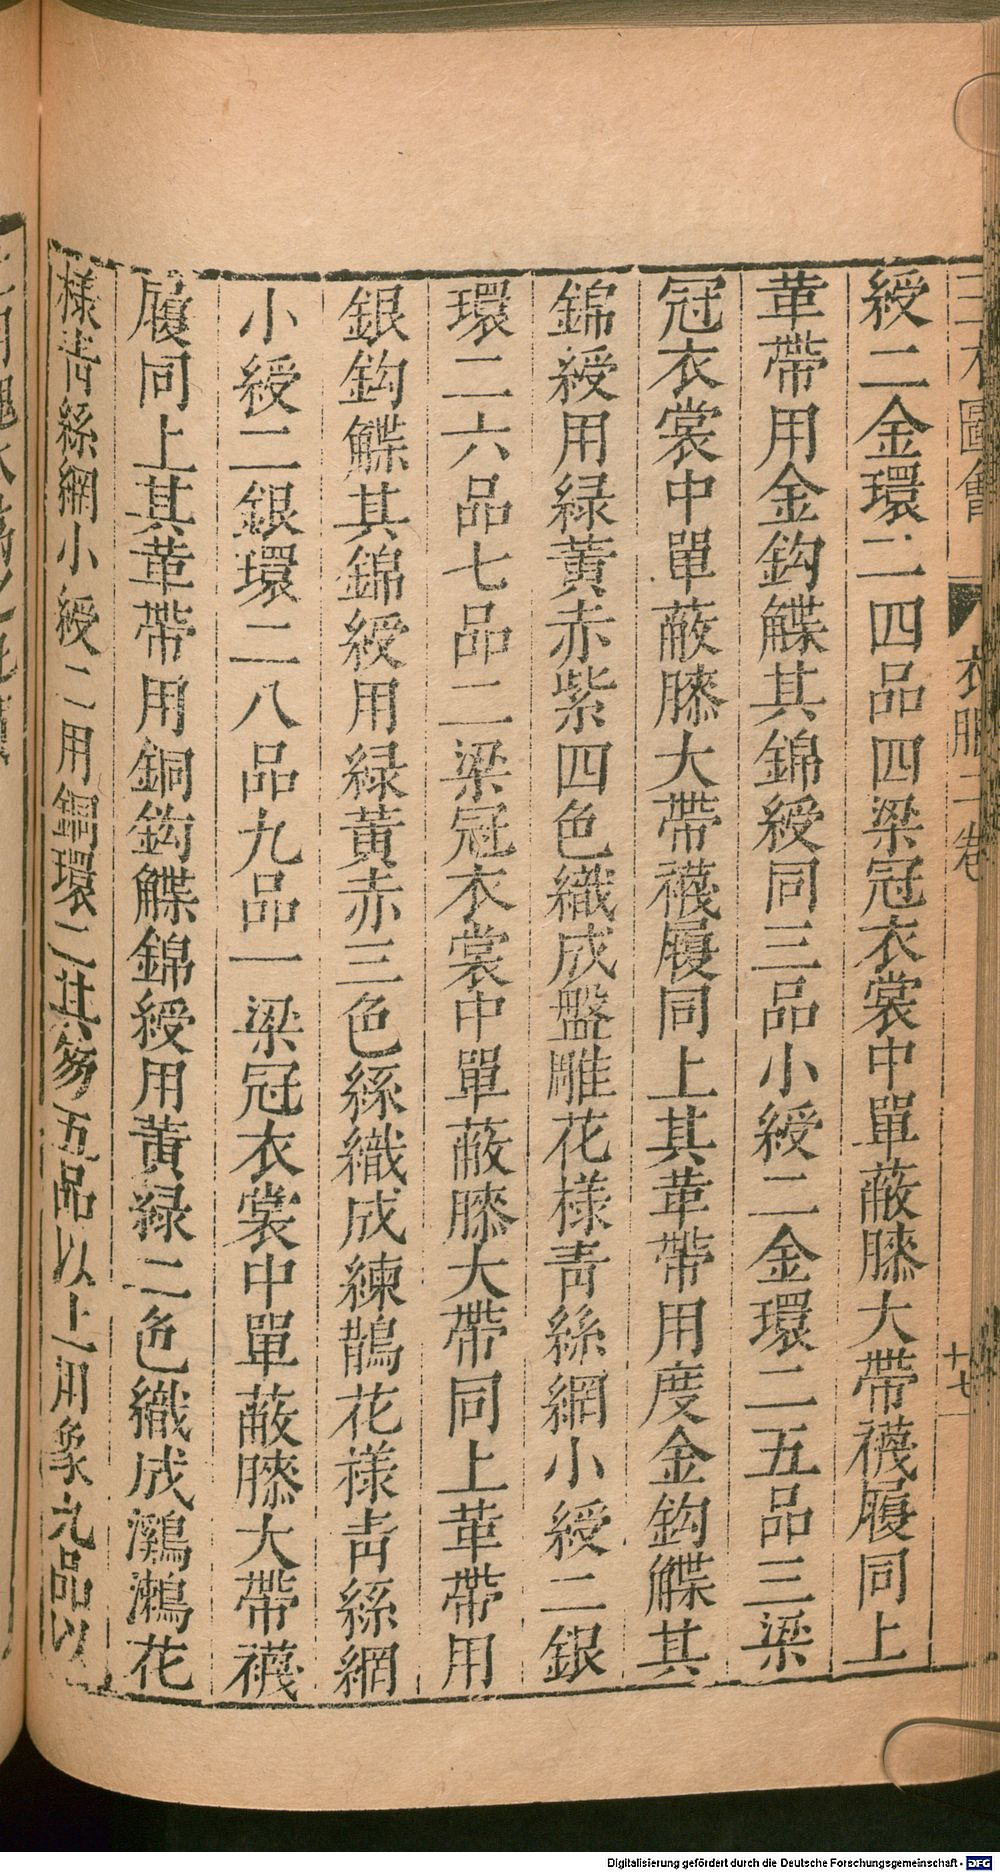 三才圖會 衣服二卷 十七
綬二金環二四品四梁冠衣裳中單蔽膝大帶襪履同上
革帶用金鈎䚢其錦綬同三品小綬二金環二五品三梁
冠衣裳中單蔽膝大帶襪履同上其革帶用度金鈎䚢其
錦綬用緑黃赤紫四色織成盤雕花樣青絲網小綬二銀
環二六品七品二梁冠衣裳中單蔽膝大帶同上革帶用
銀鈎䚢其錦綬用緑黃赤三色絲織成練鵲花樣青絲網
小綬二銀環二八品九品一梁冠衣裳中單蔽膝大帶襪
履同上其革帶用銅鈎䚢錦綬用黃緑二色織成鸂鷘花
樣青絲網小綬二用銅環二其笏五品以上用象九品以
Digitalisierung gefördert durch die Deutsche Forschungsgemeinschaft - DFG